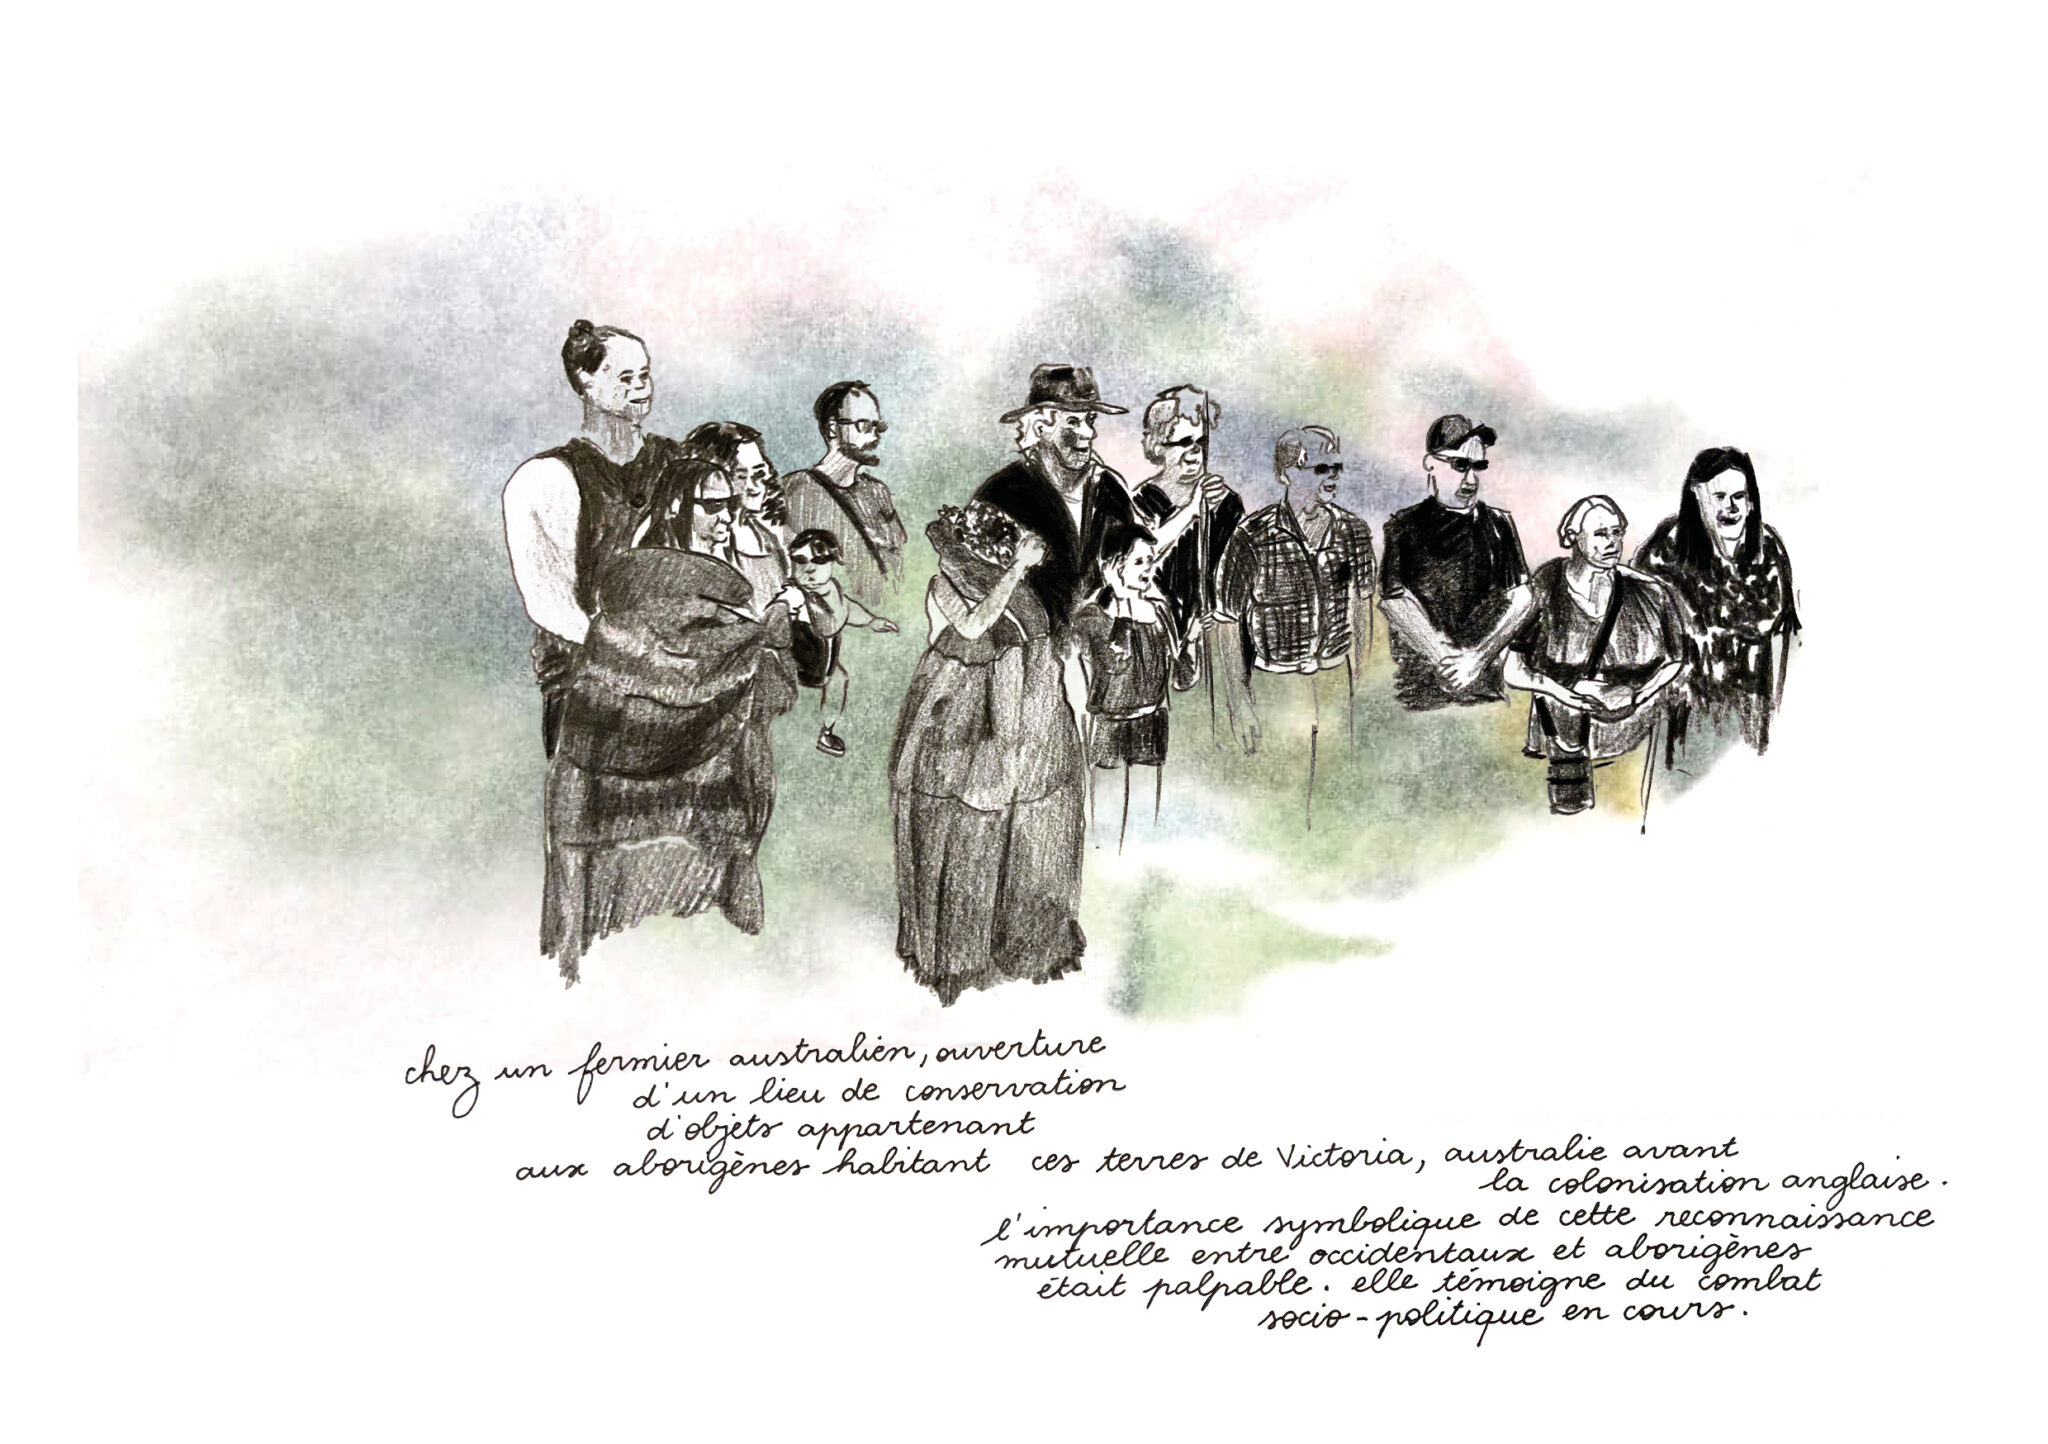 chez un fermier australien, ouverture
d'un lieu de conservation
d'objets appartenant
aux aborigènes habitant ces terres de Victoria, australie avant
la colonisation anglaise.
l'importance symbolique de cette reconnaissance
mutuelle entre occidentaux et aborigènes
était palpable. elle témoigne du combat
socio-politique en cours.